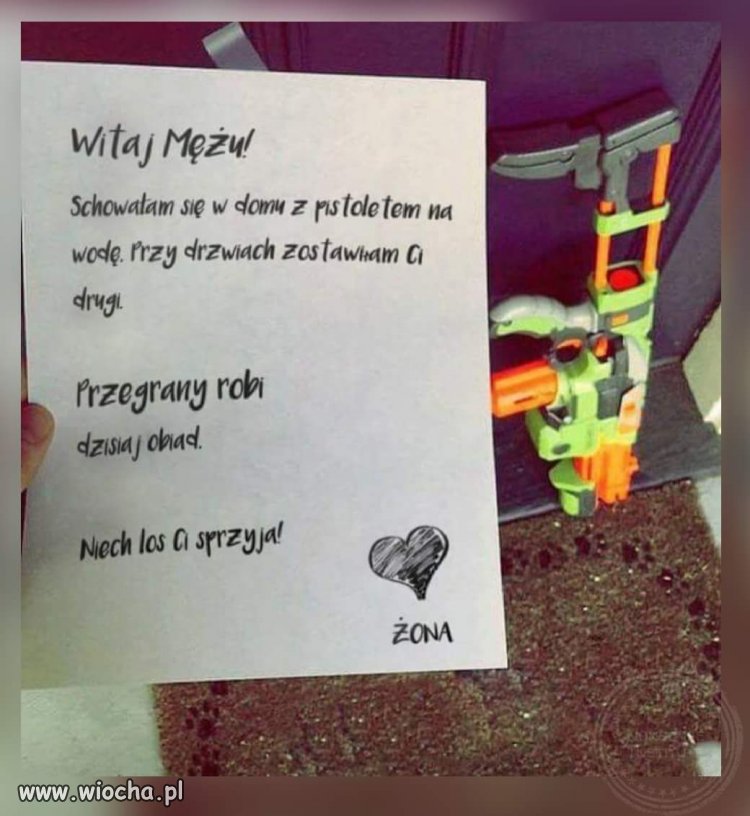 Witaj Mężu!
Schowałam się w domu z pistoletem na
wodę. Przy drzwiach zostawiłam Ci
drugi.
Przegrany robi
dzisiaj obiad.
Niech los Ci sprzyja!
ŻONA
www.wiocha.pl